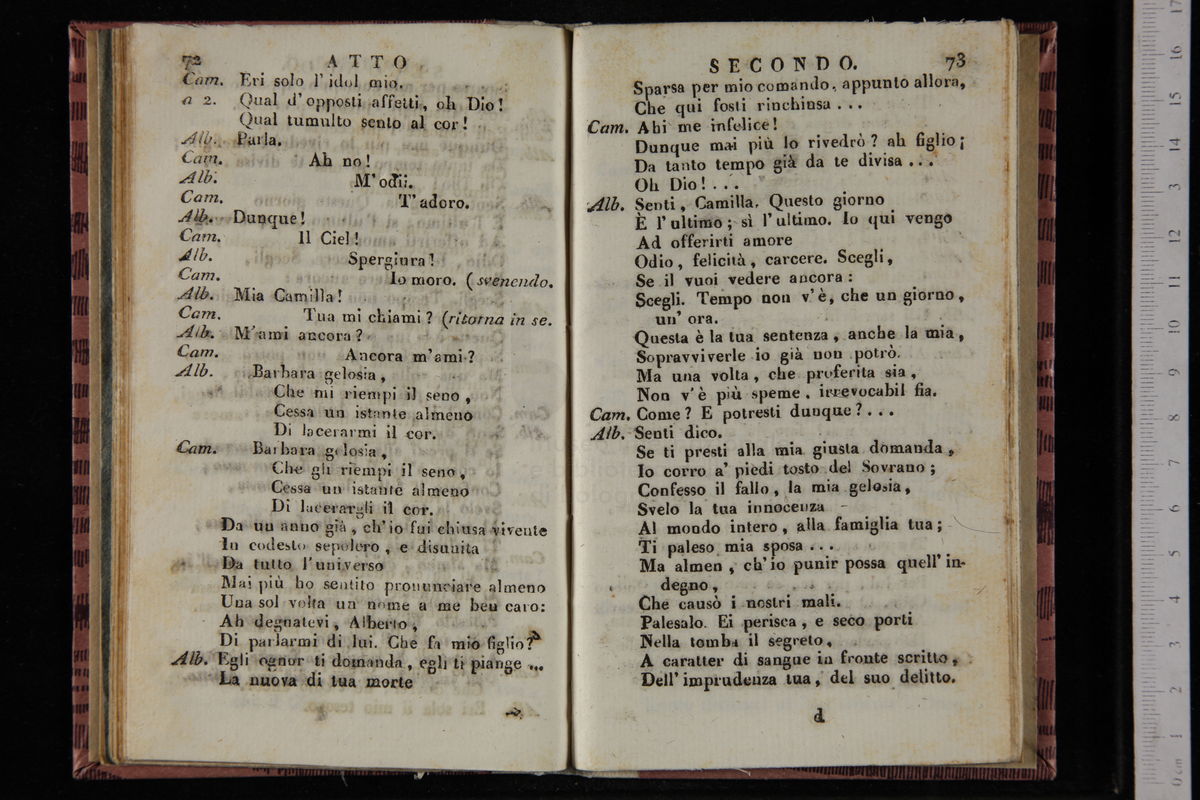 72 ATTO
Cam. Eri solo l'idol mio.
a 2. Qual d'opposti affetti, oh Dio!
Qual tumulto sento al cor!
Alb. Parla.
Cam. Ah no!
Alb. M'odii.
Cam. T'adoro.
Alb. Dunque!
Cam. Il Ciel!
Alb. Spergiura!
Cam. Io moro. (svenendo.
Alb. Mia Camilla!
Cam. Tua mi chiami? (ritorna in se.
Alb. M'ami ancora?
Cam. Ancora m'ami?
Alb. Barbara gelosia,
Che mi riempi il seno,
Cessa un istante almeno
Di lacerarmi il cor.
Cam. Barbara gelosia,
Che gli riempi il seno,
Cessa un istante almeno
Di lacerargli il cor.
Da un anno già, ch'io fui chiusa vivente
In codesto sepolcro, e disunita
Da tutto l'universo
Mai più ho sentito pronunciare almeno
Una sol volta un nome a me ben caro:
Ah degnatevi, Alberto,
Di parlarmi di lui. Che fa mio figlio?
Alb. Egli ognor ti domanda, egli ti piange ...
La nuova di tua morte
SECONDO. 73
Sparsa per mio comando, appunto allora,
Che qui fosti rinchiusa ...
Cam. Ahi me infelice!
Dunque mai più lo rivedrò? ah figlio;
Da tanto tempo già da te divisa ...
Oh Dio! ...
Alb. Senti, Camilla. Questo giorno
È l'ultimo; sì l'ultimo. Io qui vengo
Ad offerirti amore
Odio, felicità, carcere. Scegli,
Se il vuoi vedere ancora:
Scegli. Tempo non v'è, che un giorno,
un' ora.
Questa è la tua sentenza, anche la mia,
Sopravviverle io già non potrò.
Ma una volta, che proferita sia,
Non v'è più speme, irrevocabil fia.
Cam. Come? E potresti dunque? ...
Alb. Senti dico.
Se ti presti alla mia giusta domanda,
Io corro a' piedi tosto del Sovrano;
Confesso il fallo, la mia gelosia,
Svelo la tua innocenza
Al mondo intero, alla famiglia tua;
Ti paleso mia sposa ...
Ma almen, ch'io punir possa quell' in-
degno,
Che causò i nostri mali.
Palesalo. Ei perisca, e seco porti
Nella tomba il segreto,
A caratter di sangue in fronte scritto,
Dell'imprudenza tua, del suo delitto.
d
0 cm 1 2 3 4 5 6 7 8 9 10 11 12 13 14 15 16 17